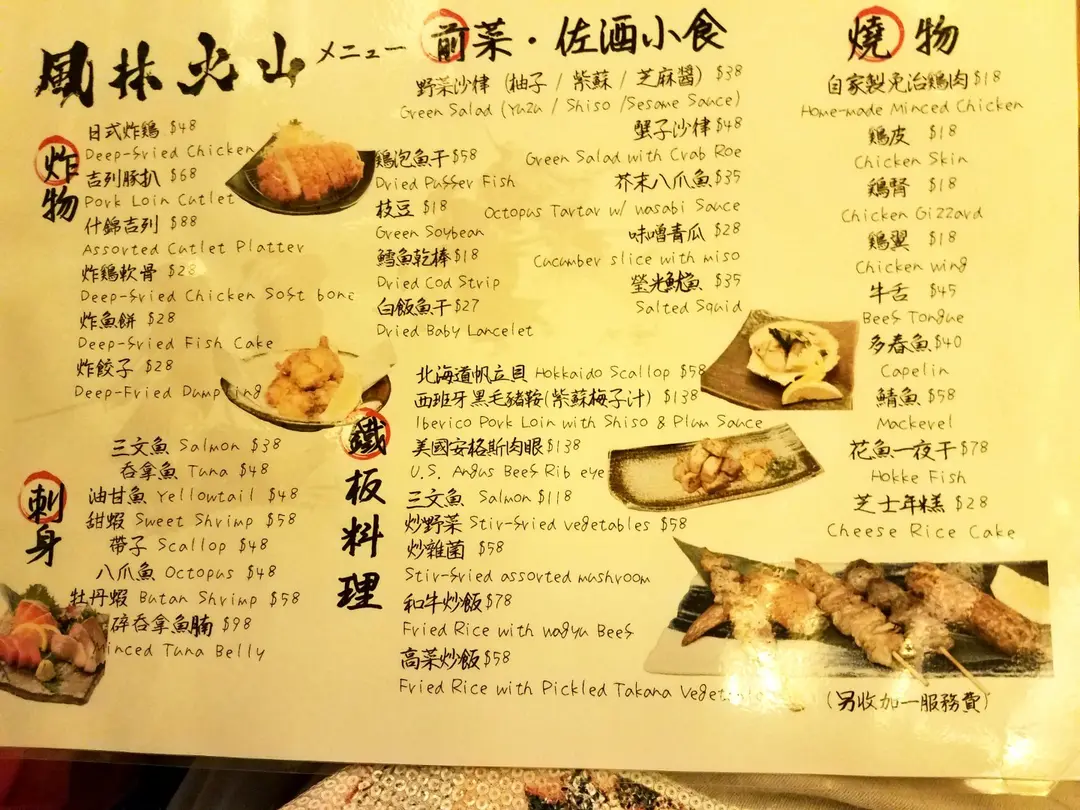 風林火山 メニュー
炸物
日式炸鶏 $48
Deep-fried Chicken
吉列豚扒 $68
Pork Loin Cutlet
什錦吉列 $88
Assorted Cutlet Platter
炸鶏軟骨 $28
Deep-fried Chicken Soft bone
炸魚餅 $28
Deep-fried Fish Cake
炸餃子 $28
Deep-Fried Dumpling
刺身
三文魚 Salmon $38
吞拿魚 Tuna $48
油甘魚 Yellowtail $48
甜蝦 Sweet Shrimp $58
帶子 Scallop $48
八爪魚 Octopus $48
牡丹蝦 Butan Shrimp $58
碎吞拿魚腩 $98
Minced Tuna Belly
前菜・佐酒小食
野菜沙律 (柚子 / 紫蘇 / 芝麻醬) $38
Green Salad (Yuzu / Shiso /Sesame Sauce)
蟹子沙律 $48
Green Salad with Crab Roe
鶏泡魚干 $58
Dried Puffer Fish
芥末八爪魚 $35
Octopus Tartar w/ wasabi Sauce
枝豆 $18
Green Soybean
味噌青瓜 $28
Cucumber slice with miso
鱈魚乾棒 $18
Dried Cod Strip
螢光魷魚 $35
Salted Squid
白飯魚干 $27
Dried Baby Lancelet
鐵板料理
北海道帆立貝 Hokkaido Scallop $58
西班牙黑毛豬鞍(紫蘇梅子汁) $138
Iberico Pork Loin with Shiso & Plum Sauce
美國安格斯肉眼 $138
U.S. Angus Beef Rib eye
三文魚 Salmon $118
炒野菜 Stir-fried vegetables $58
炒雜菌 $58
Stir-fried assorted mushroom
和牛炒飯 $78
Fried Rice with wagyu Beef
高菜炒飯 $58
Fried Rice with Pickled Takana
燒物
自家製免治鶏肉 $18
Home-made Minced Chicken
鶏皮 $18
Chicken Skin
鶏腎 $18
Chicken Gizzard
鶏翼 $18
Chicken wing
牛舌 $45
Beef Tongue
多春魚 $40
Capelin
鯖魚 $58
Mackevel
花魚一夜干 $78
Hokke Fish
芝士年糕 $28
Cheese Rice Cake
(另收加一服務費)